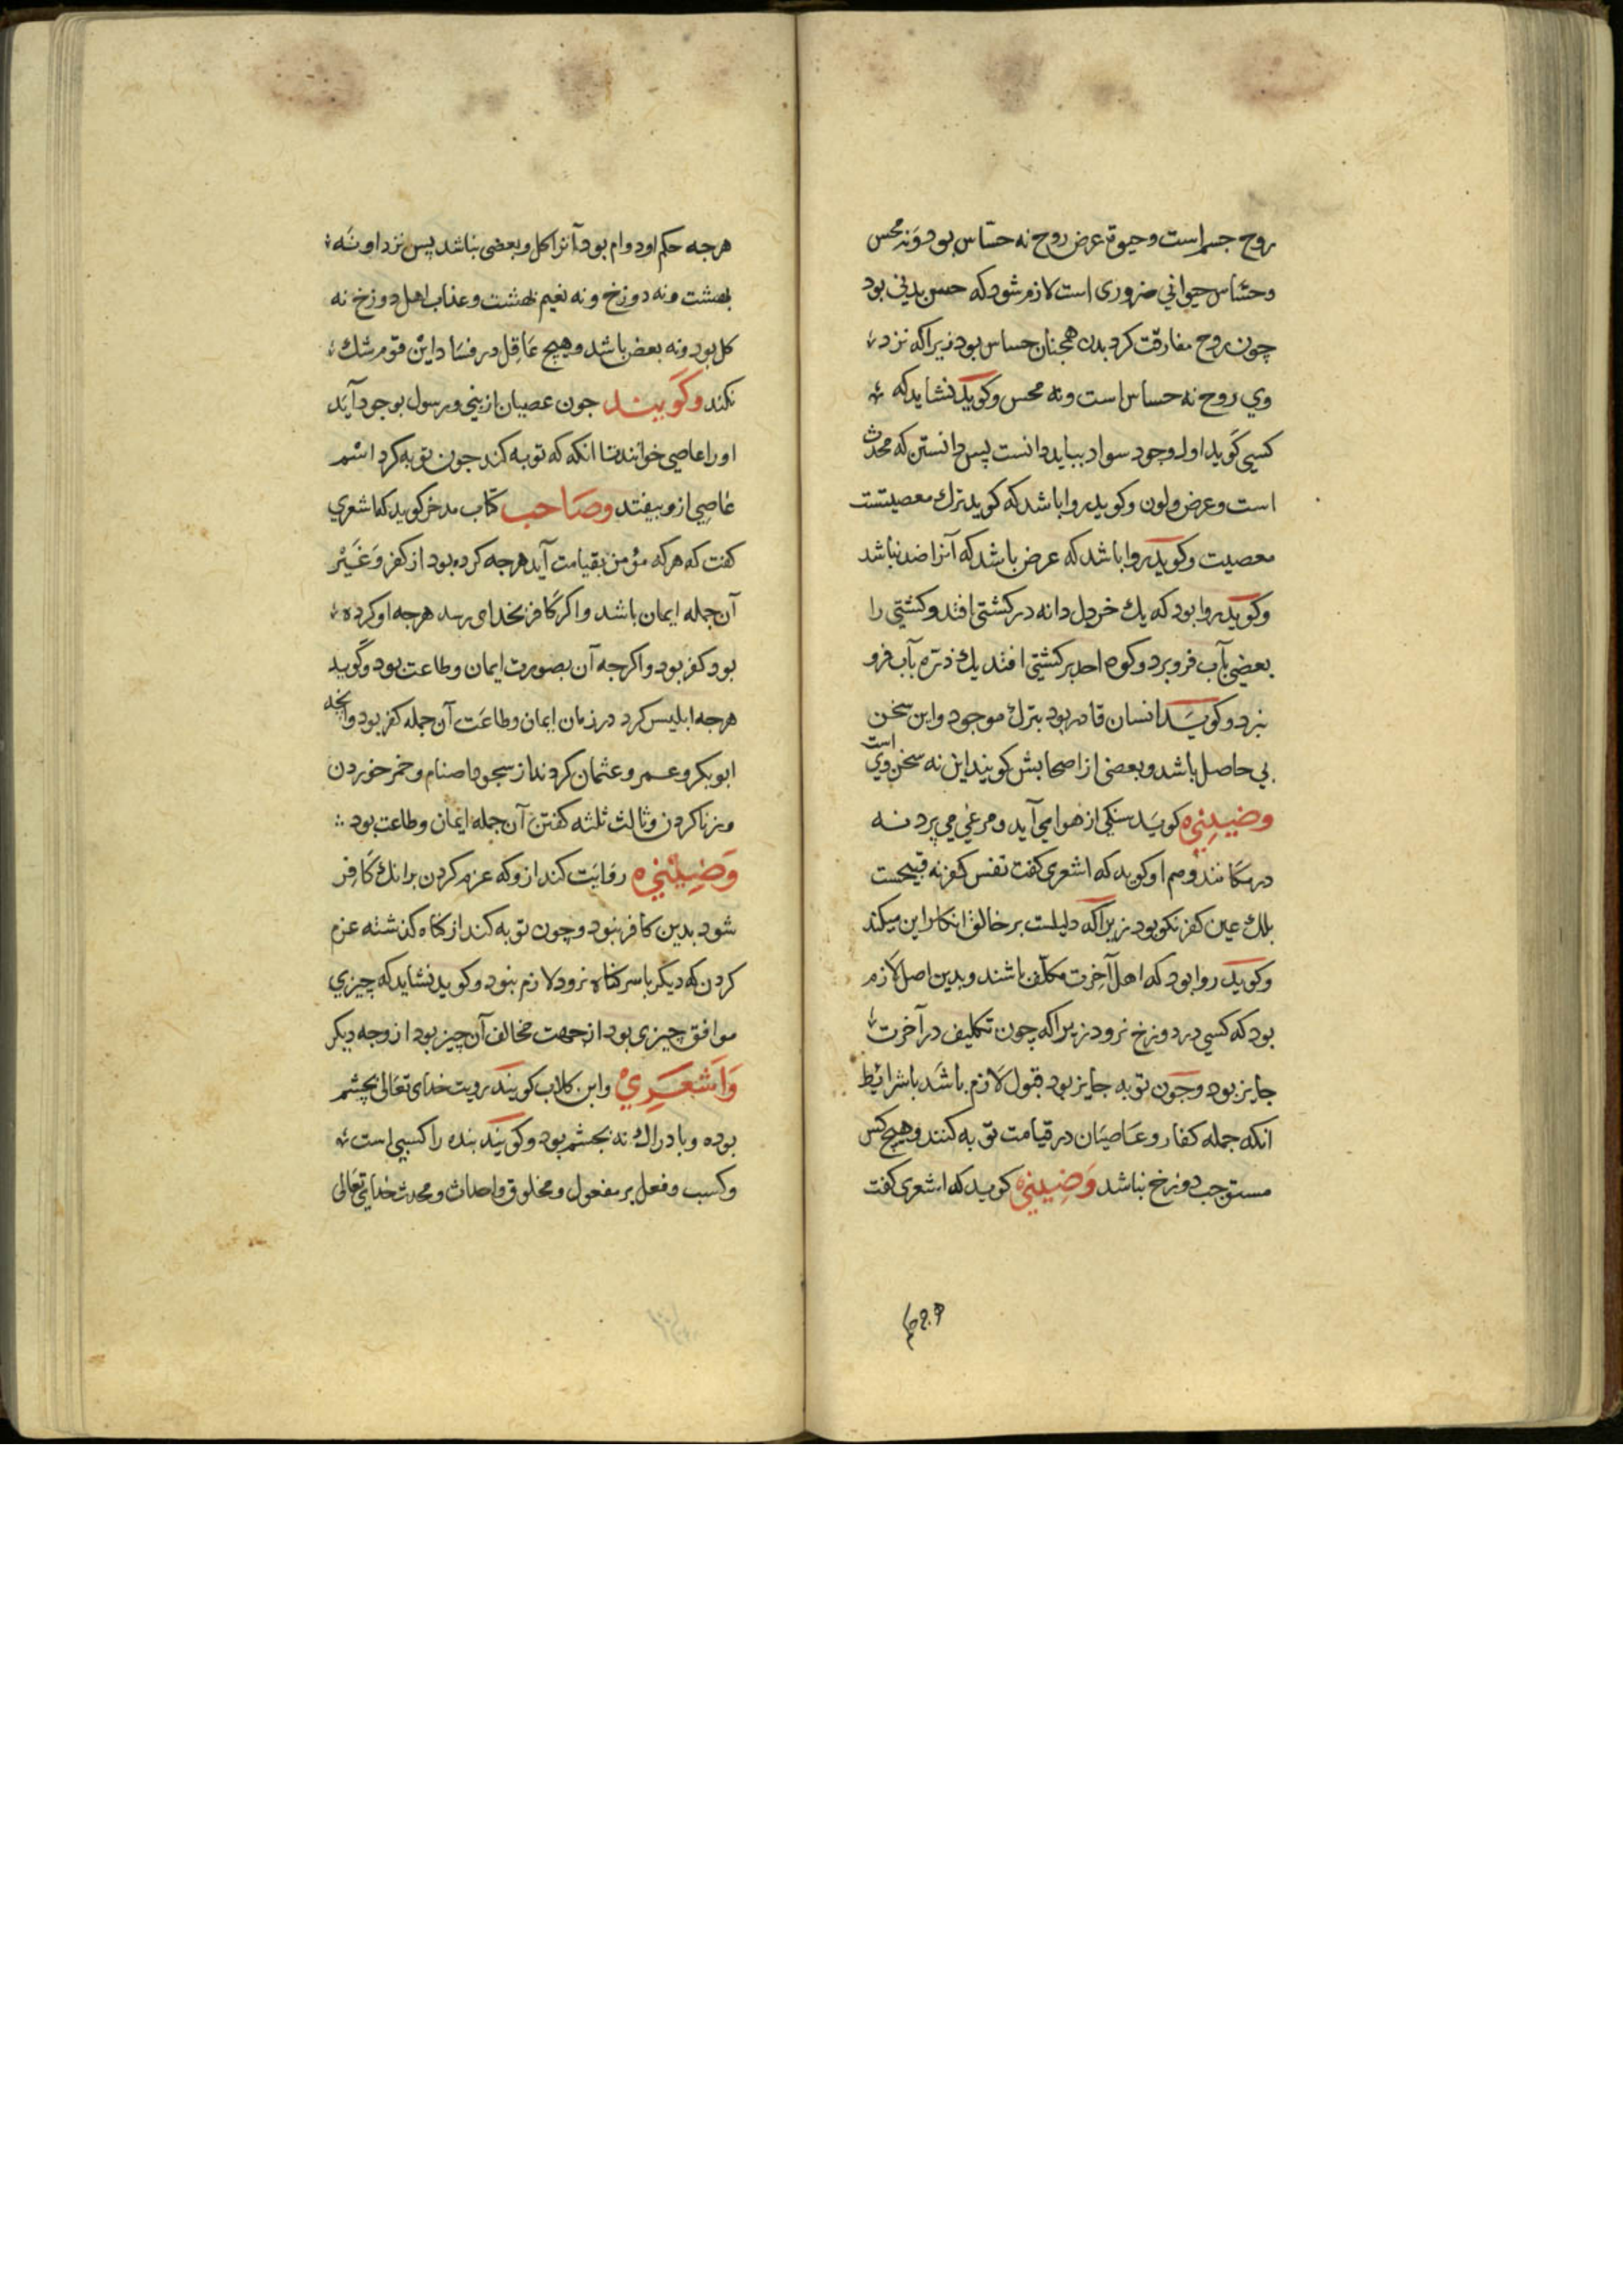 روح جسم است وحیوة عرض روح نه حسّاس بود ونه محس
وحسّاس حیوانی ضروری است لازم شود که حس بدنی بود
چون روح مفارقت کرد بدن همچنان حساس بود زیرا که نزد
وی روح نه حساس است ونه محس وکوید نشاید که
کسی کوید اول وجود سواد بباید دانست پس دانستن که محدث
است وعرض ولون وکوید روا باشد که کوید ترك معصیتست
معصیت وکوید روا باشد که عرض باشد که آنرا ضد نباشد
وکوید روا بود که یك خردل دانه در کشتی افتد وکشتی را
بعضی بآب فرو برد وکوه احد بر کشتی افتد یك ذره بآب فرو
نبرد وکوید انسان قادر بود بترك موجود واین سخن
بی حاصل باشد وبعضی از اصحابش کویند این نه سخن وی است
کوید سنکی از هوا می آید ومرغی می پرد نه
در مکانند وهم او کوید که اشعری کفت نفس کفر نه قبیحست
بلك عین کفر نکو بود زیرا که دلیلست بر خالق انکار این میکند
وکوید روا بود که اهل آخرت مکلّف باشند وبدین اصل لازم
بود که کسی در دوزخ نرود زیرا که چون تکلیف در آخرت
جایز بود وچون توبه جایز بود قبول لازم باشد باشرایط
انکه جمله کفار وعاصیان در قیامت توبه کنند وهیچ کس
مستوجب دوزخ نباشد کوید که اشعری کفت
هرجه حکم او دوام بود آنرا کل وبعضی نباشد پس نزد او نه
بهشت ونه دوزخ ونه نعیم بهشت وعذاب اهل دوزخ نه
کل بود ونه بعض باشد وهیچ عاقل در فساد این قوم شك
نکند وکویند جون عصیان از نبی ورسول بوجود آید
اورا عاصی خوانند تا انکه که توبه کند جون توبه کرد اسم
عاصی ازو بیفتد وصاحب کتاب مدخل کوید که اشعری
کفت که هرکه مؤمن بقیامت آید هرجه کرده بود از کفر وغیر
آن جمله ایمان باشد واکر کافر بخدای رسد هرجه او کرده
بود کفر بود واکرجه آن بصورت ایمان وطاعت بود وکوید
هرجه ابلیس کرد در زمان ایمان وطاعت آن جمله کفر بود وانجه
ابوبکر وعمر وعثمان کردند از سجود اصنام وخمر خوردن
وزنا کردن وثالث ثلثه کفتن آن جمله ایمان وطاعت بود
روایت کند ازو که عزم کردن برانك کافر
شود بدین کافر نبود وچون توبه کند از کناه کذشته عزم
کردن که دیکر باسر کناه نرود لازم نبود وکوید نشاید که چیزی
موافق چیزی بود از جهت مخالف آن چیز بود از وجه دیکر
واشعری وابن کلاب کویند رویت خدای تعالی بچشم
بوده وبادراك نه بچشم بود وکویند بنده را کسبی است
وکسب وفعل بر مفعول ومخلوق واحداث ومحدث خدای تعالی